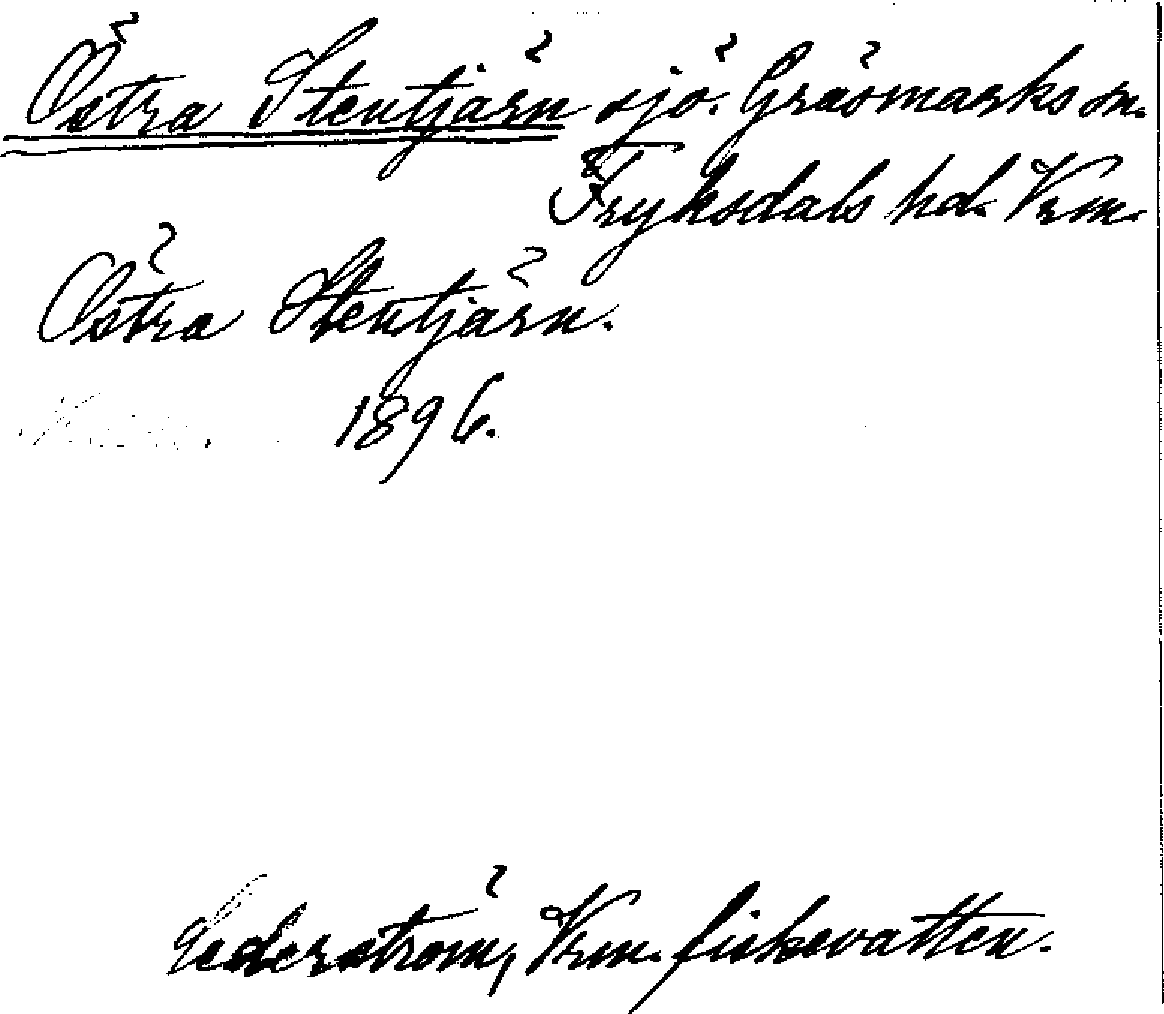 Östra Stentjärn sjö. Gräsmarks sn.
Fryksdals hd. Vrm.
Östra Stentjärn.
1896.
Cederström, Vrm. fiskevatten.